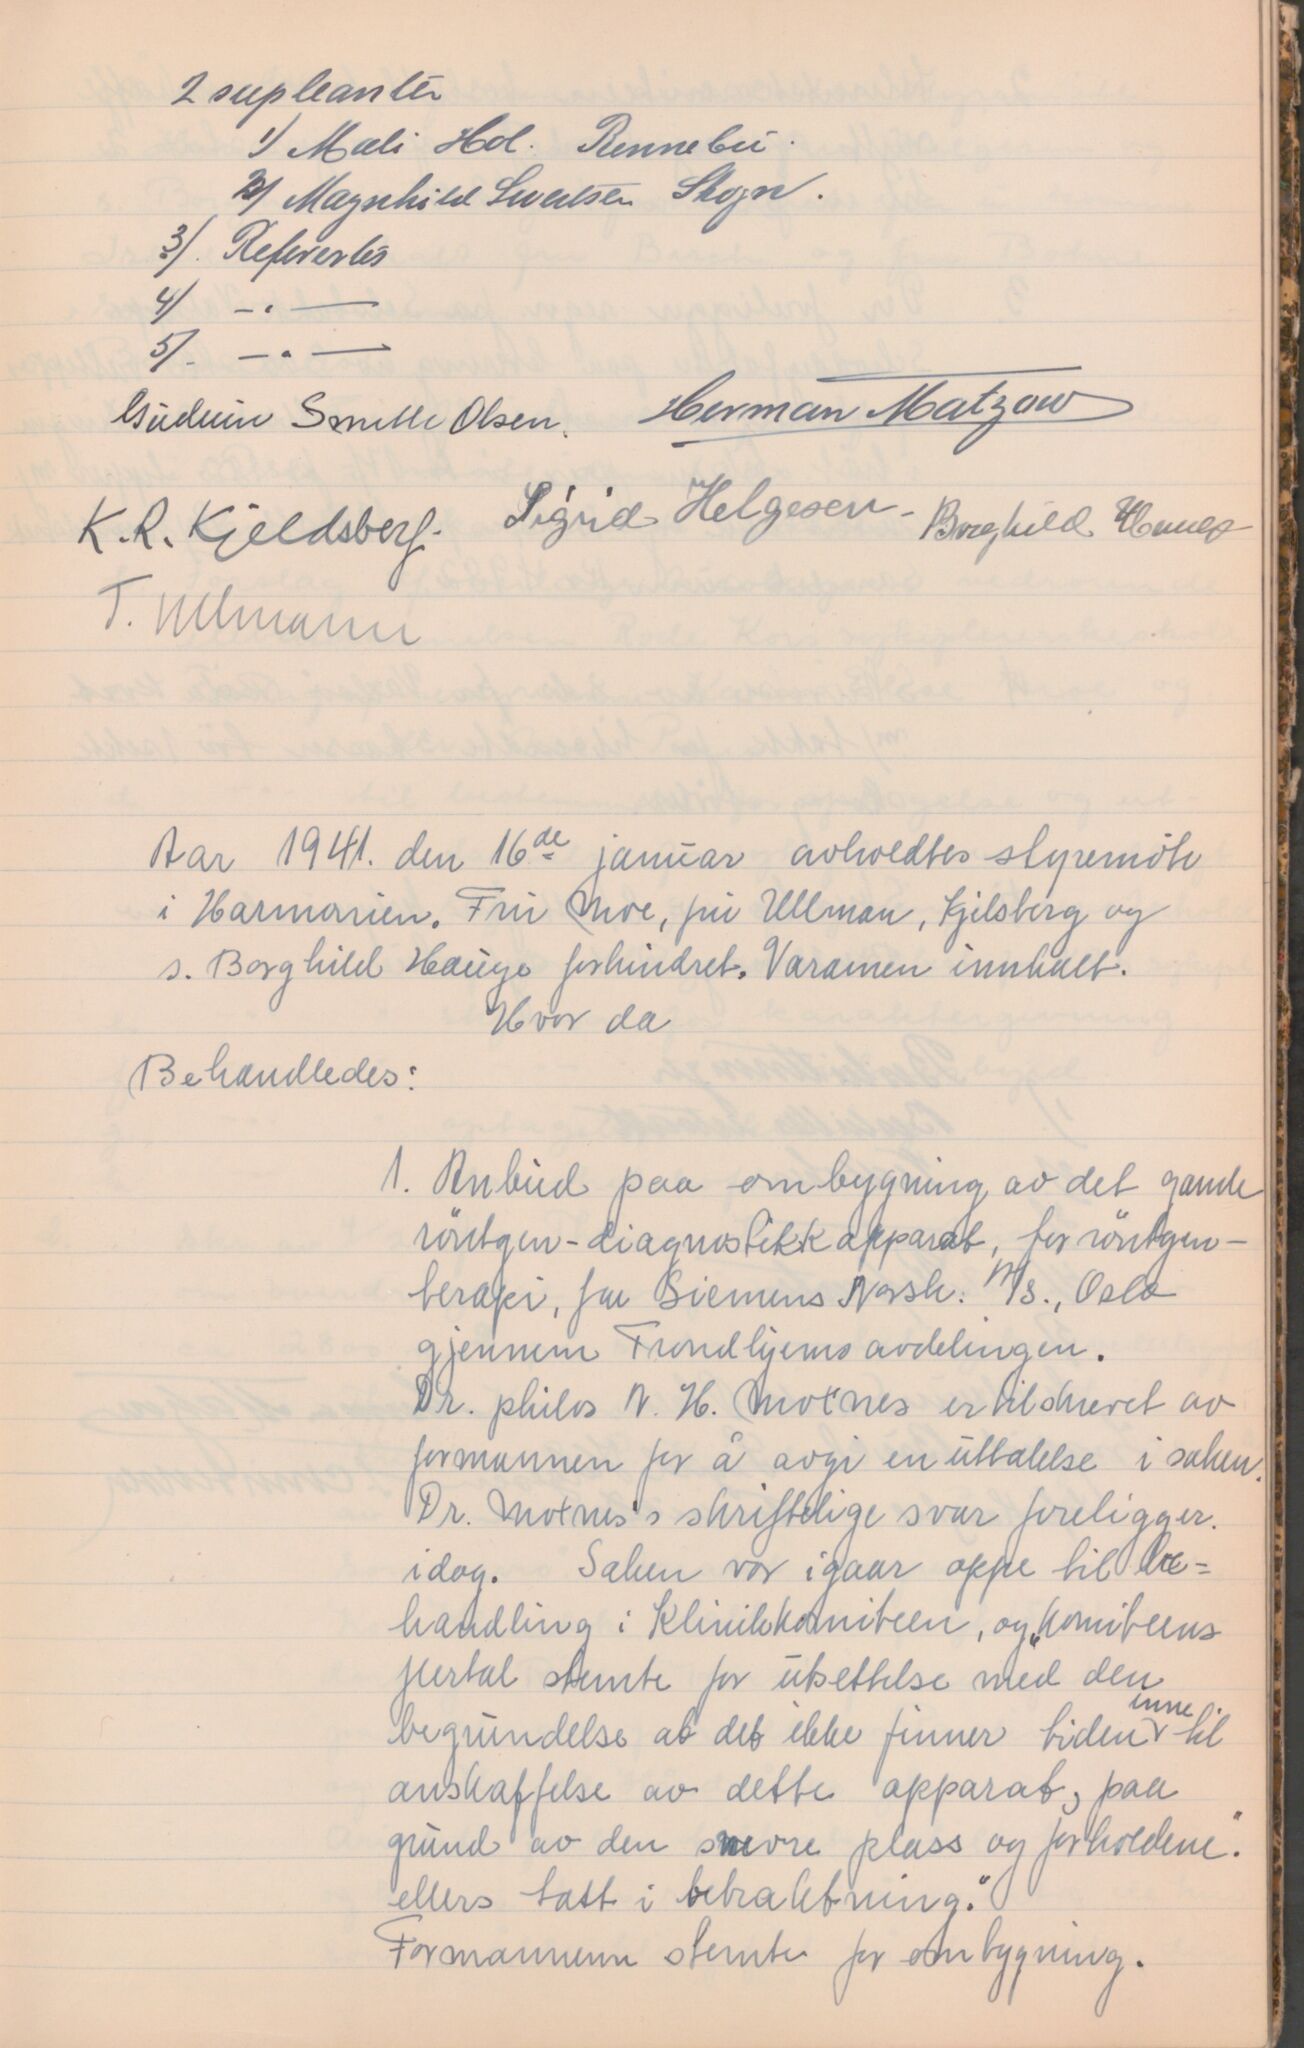 2 supleanter
1/ Mali Hol. Rennebu.
2/ Magnhild Sivertsen Skogn.
3/. Referertes
4/ -"-
5/. -"-
Gudrun Smette Olsen. Herman Matzow
K. R. Kjeldsberg. Sigrid Helgesen - Borghild Hauge
T. Ullmann
Aar 1941. den 16de januar avholdtes styremöte
i Harmonien. Fru Moe, fru Ullman, Kjelsberg og
s. Borghild Hauge forhindret. Varamen innkalt.
Hvor da
Behandledes:
1. Anbud paa ombygning av det gamle
röntgen-diagnostikkapparat, for röntgen-
terapi, fra Siemens Norsk. A/S., Oslo
gjennem Trondhjems avdelingen.
Dr. philos N. H. Moxnes er tilskrevet av
formannen for å avgi en uttalelse i saken.
Dr. Moxnes's skriftelige svar foreligger.
idag. Saken var igaar oppe til be=
handling i Klinikkomiteen, og "komiteens
flertal stemte for utsettelse med den
begrundelse at det ikke finner tiden inne til
anskaffelse av dette apparat, paa
grund av den snevre plass og forholdene."
ellers tatt i betraktning."
Formannen stemte for ombygning.